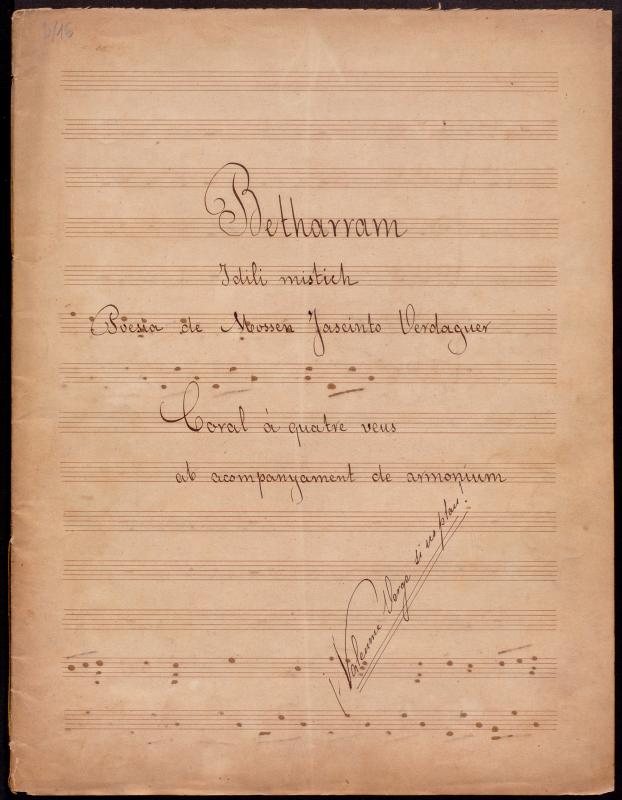 D/16
Betharram
Idili mistich
Poesia de Mossen Jascinto Verdaguer
Coral à quatre veus
ab acompanyament de armonium
¡Valeume Verge si us plau!